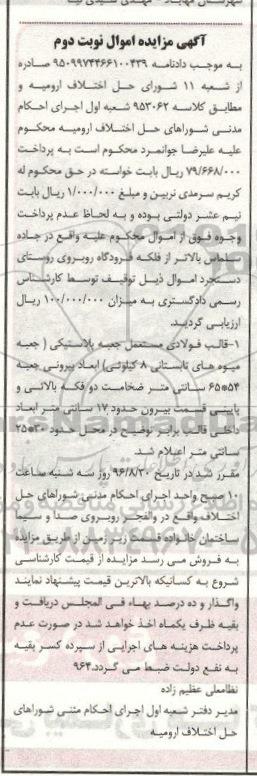 آگهی مزایده اموال نوبت دوم
به موجب دادنامه ۹۵۰۹۹۷۴۴۶۶۱۰۰۴۳۹ صادره
از شعبه ۱۱ شورای حل اختلاف ارومیه و
مطابق کلاسه ۹۵۳۰۶۲ شعبه اول اجرای احکام
مدنی شوراهای حل اختلاف ارومیه محکوم
علیه علیرضا جوانمرد محکوم است به پرداخت
۷۹/۶۶۸/۰۰۰ ریال بابت خواسته در حق محکوم له
کریم سرمدی نربین و مبلغ ۱/۰۰۰/۰۰۰ ریال بابت
نیم عشر دولتی بوده و به لحاظ عدم پرداخت
وجوه فوق از اموال محکوم علیه واقع در جاده
سلماس بالاتر از فلکه فرودگاه روبروی روستای
دستجرد اموال ذیل توقیف توسط کارشناس
رسمی دادگستری به میزان ۱۰۰/۰۰۰/۰۰۰ ریال
ارزیابی گردید.
۱-قالب فولادی مستعمل جعبه پلاستیکی ( جعبه
میوه های تابستانی ۸ کیلوئی) ابعاد بیرونی جعبه
۵۴*۶۵ سانتی متر ضخامت دو فکه بالائی و
پایینی قسمت بیرون حدود ۱۷ سانتی متر ابعاد
داخلی قالب برابر توضیح در محل حدود ۳۰*۲۵
سانتی متر اعلام شد.
مقرر شد در تاریخ ۹۶/۸/۳۰ روز سه شنبه ساعت
۱۰ صبح واحد اجرای احکام مدنی شوراهای حل
اختلاف واقع در والفجر روبروی صدا و سیما
ساختمان خانواده قسمت زیر زمین از طریق مزایده
به فروش می رسد مزایده از قیمت کارشناسی
شروع به کسانیکه بالاترین قیمت پیشنهاد نمایند
واگذار و ده درصد بهاء فی المجلس دریافت و
بقیه ظرف یکماه اخذ خواهد شد در صورت عدم
پرداخت هزینه های اجرایی از سپرده کسر بقیه
به نفع دولت ضبط می گردد.۹۶۴
نظامعلی عظیم زاده
مدیر دفتر شعبه اول اجرای احکام مدنی شوراهای
حل اختلاف ارومیه